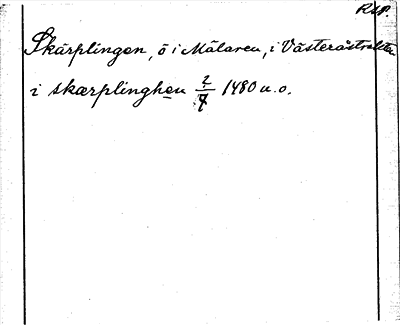 Skärplingen, ö i Mälaren, i Västeråstrakten
i skærplinghen 2/7 1480 u.o.